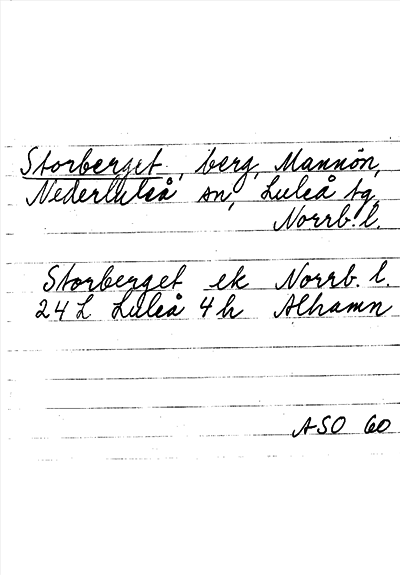 Storberget, berg, Mannön,
Nederluleå sn, Luleå tg,
Norrb. l.
Storberget ek Norrb. l.
24 L Luleå 4 h Alhamn
ASO 60